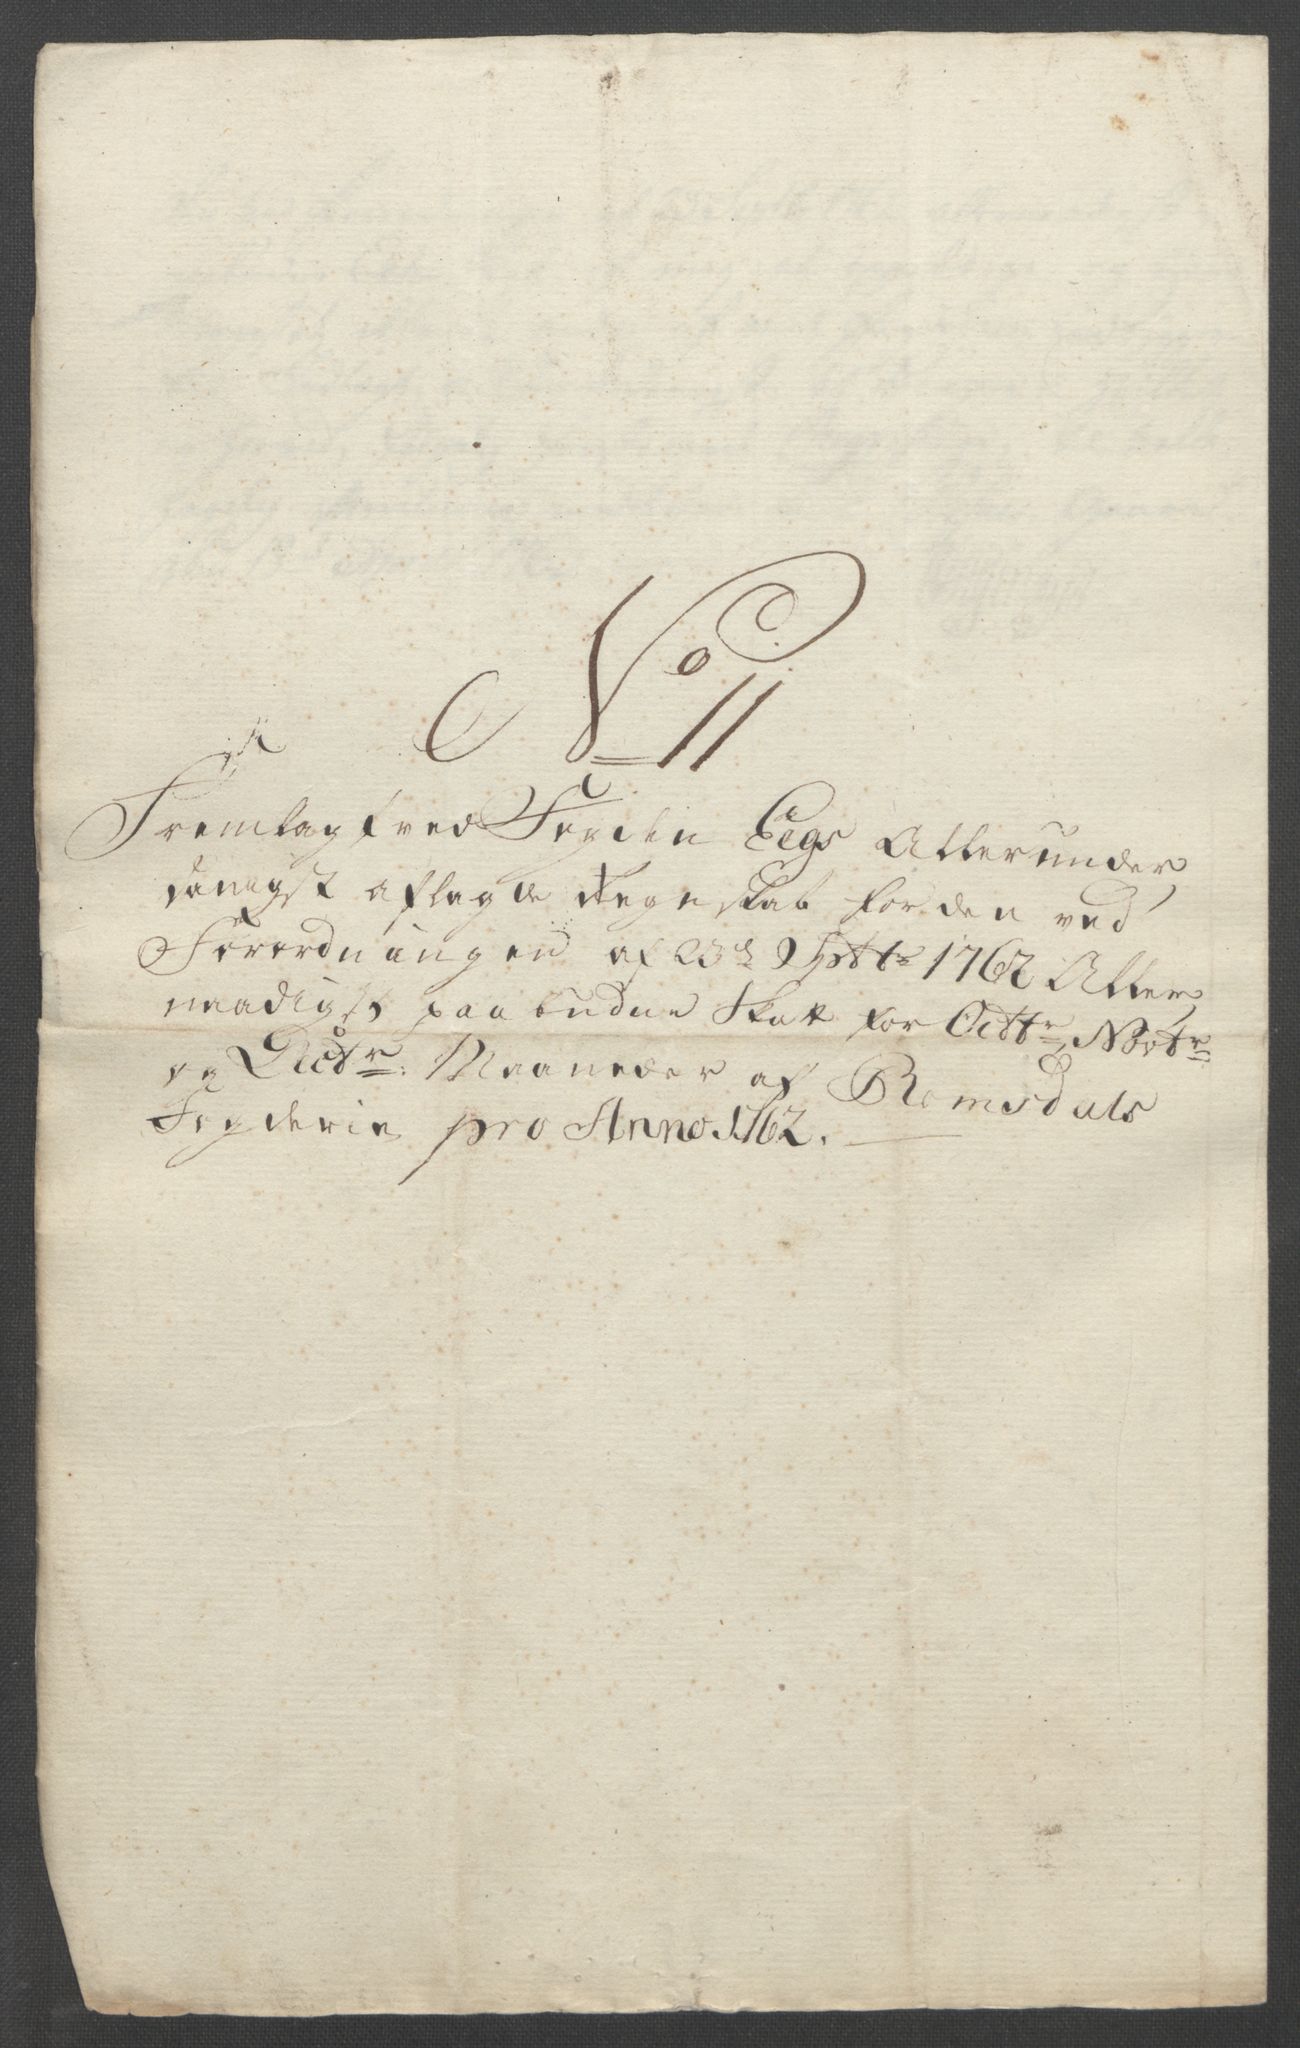 No 11
Fremlagt ved Fogden Eegs Allerunder
danigst aflagde Regnskab for den ved
Forordningen af 23de Sptbr 1762 Aller
naadigst paabudne Skatt for Octbr, Novbr
og Decbr: Maaneder af Romsdals
Fogderie pro Anno 1762.